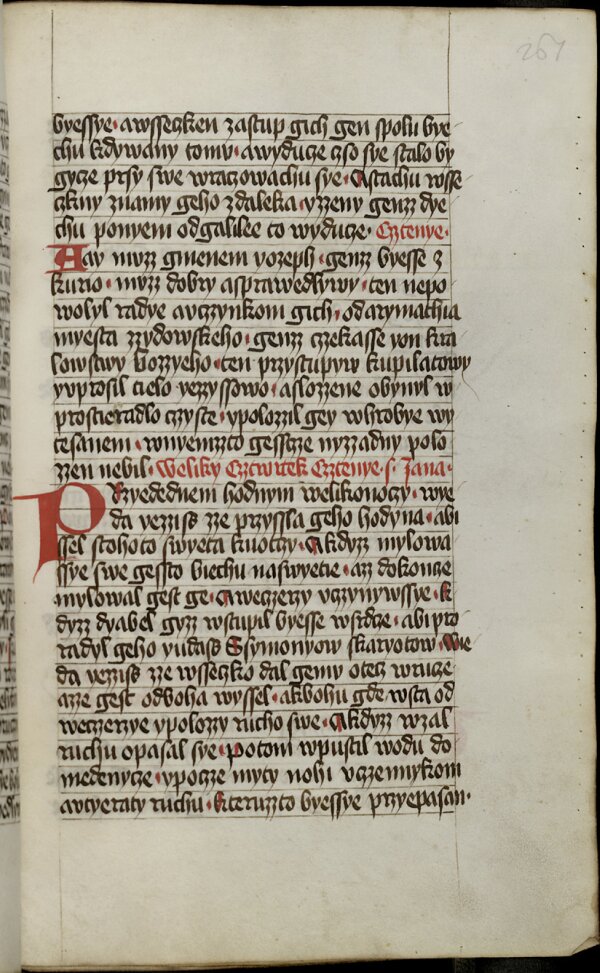 261
byessye· awsseczken zastup gich gen spolu bye
chu kdywany tomu· awyducze czso sye stalo by
gycze prsy swe wraczowachu sye· Astachu wsse
czkny znamy geho zdaleka· yzzeny genzz dye
chu ponyem odgalilee to wyducze· Cztenye·
Aay muzz gmenem yozeph· genz byesse z
kurio· muzz dobry asprawedlywy· ten nepo
wolyl radye aúczynkom gich· odarymachia
myesta zzydowskeho· genzz czekasse yon kra
lowstwy bozzyeho· ten przystupyw kupilatowy
yvprosil tielo yezzyssowo· aslozzene obynyl w
prostieradlo czyste· ypolozzil gey whrobye wy
tesanem· wnyemzto gesscze nyzzadny polo
zzen nebil· Weliky Cztwrtek Cztenye· s· Jana·
Przyedednem hodnym welikonoczy· wye
da yezziss zze przyssla geho hodyna· abi
ssel stohoto swyeta kuotczy· Akdyzz mylowa
ssye swe gessto biechu naswyetie· az dokoncze
mylowal gest ge· Aweczerzy vczynywssye· k
dyzz dyabel gyzz wstupil byesse wsrdcze· abi pro
radyl geho yudass Ssymonyow skaryotow· Wie
da yezziss zze wsseczko dal gemu otecz wrucze
azze gest odboha wyssel· akbohu gde wsta od
weczerzye ypolozzy rucho swe· Akdyzz wzal
ruchu opasal sye· Potom wpustil wodu do
medenycze· ypocze myty nohi vczennykom
avtyeraty ruchu· kteruzzto byessye przyepasan·